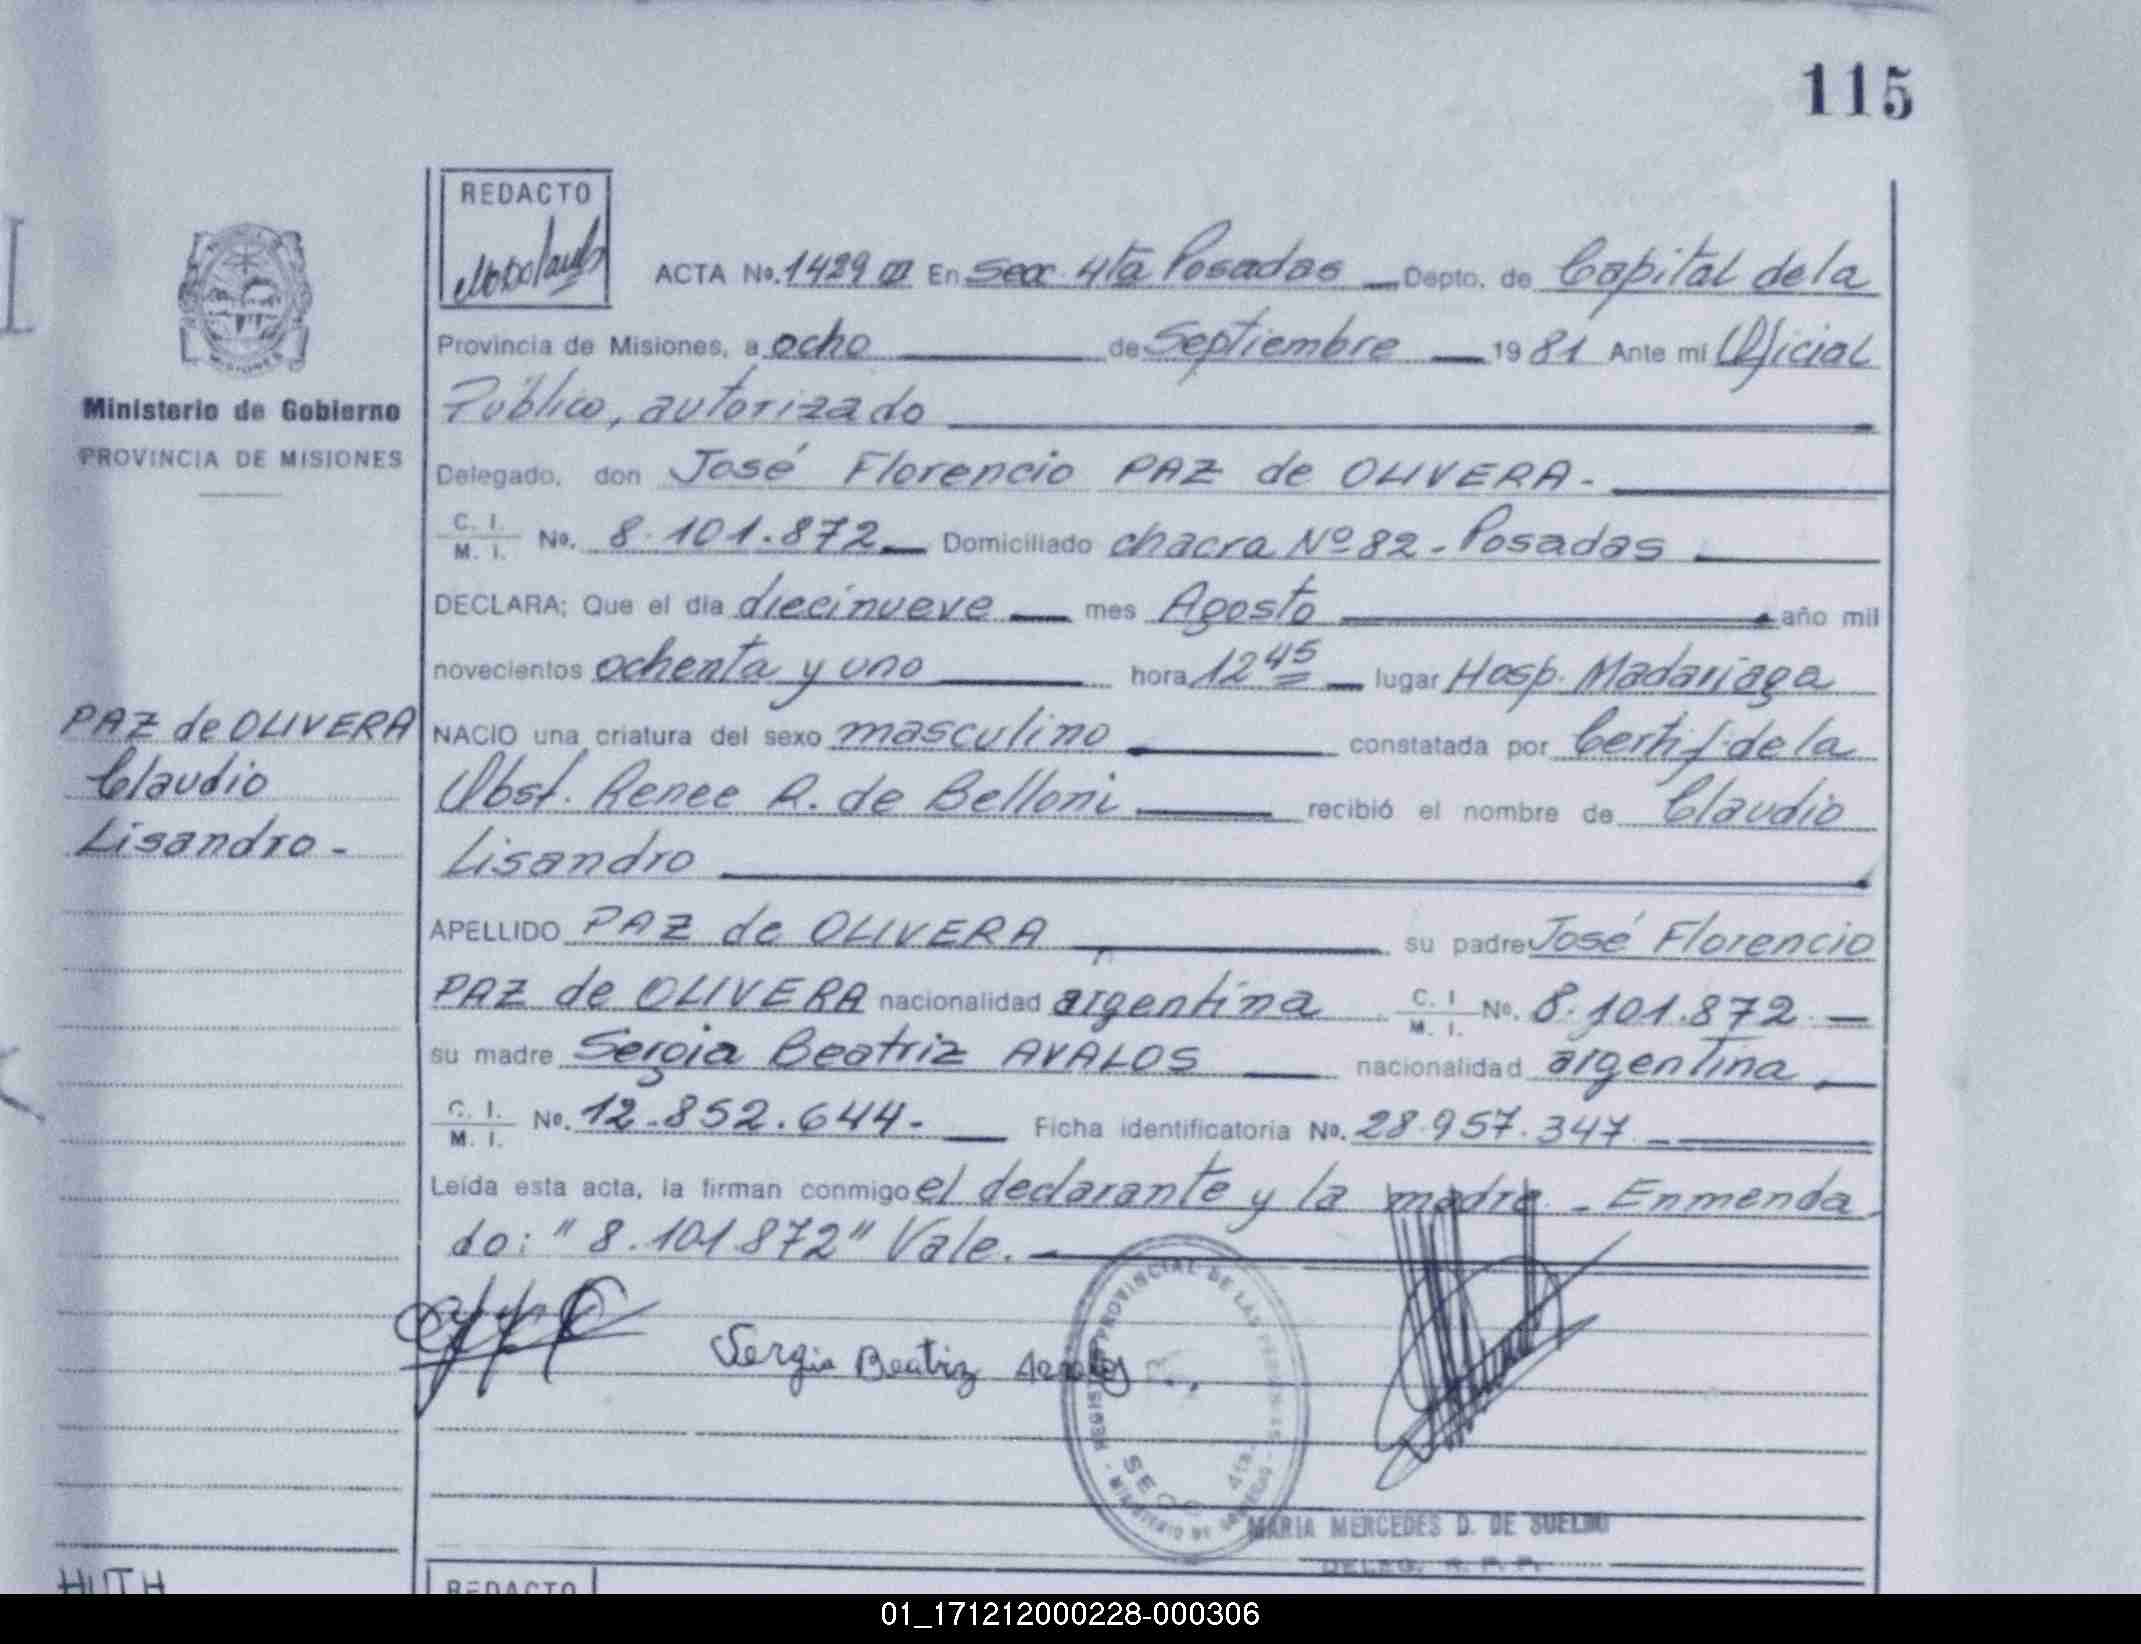 115
REDACTO
ACTA No. 1429 III En Secc 4ta Posadas Depto. de Capital de la
Provincia de Misiones, a ocho de Septiembre 1981 Ante mi Oficial
Público, autorizado
Delegado, don José Florencio PAZ de OLIVERA.-
C. I. / M. I. No. 8.101.872 Domiciliado chacra Nº 82 - Posadas
DECLARA; Que el día diecinueve mes Agosto año mil
novecientos ochenta y uno hora 12 45 lugar Hosp. Madariaga
NACIO una criatura del sexo masculino constatada por Certif. de la
Obst. Renee R. de Belloni recibió el nombre de Claudio
Lisandro
APELLIDO PAZ de OLIVERA su padre José Florencio
PAZ de OLIVERA nacionalidad argentina C. I. / M. I. No. 8.101.872
su madre Sergia Beatriz AVALOS nacionalidad argentina
C. I. / M. I. No. 12.852.644.- Ficha identificatoria No. 28.957.347
Leída esta acta, la firman conmigo el declarante y la madre - Enmenda
do: "8.101.872" Vale.
Sergia Beatriz
REGISTRO PROVINCIAL DE LAS PERSONAS
MINISTERIO DE GOBIERNO
4ta.
MARIA MERCEDES D. DE SUELDO
DELEG. R. P. P.
Ministerio de Gobierno
PROVINCIA DE MISIONES
PAZ de OLIVERA
Claudio
Lisandro -
HUTH
REDACTO
01_171212000228-000306